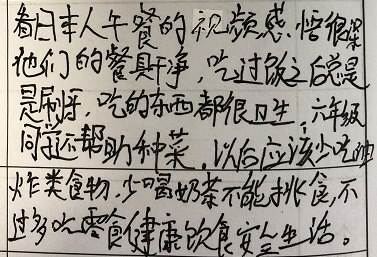 看日本人午餐的视频感悟很深
他们的餐具干净，吃过饭之后总是
是刷牙，吃的东西都很卫生，六年级
同学还帮助种菜，以后应该少吃油
炸类食物，少喝奶茶不能挑食，不
过多吃零食健康饮食安全生活。